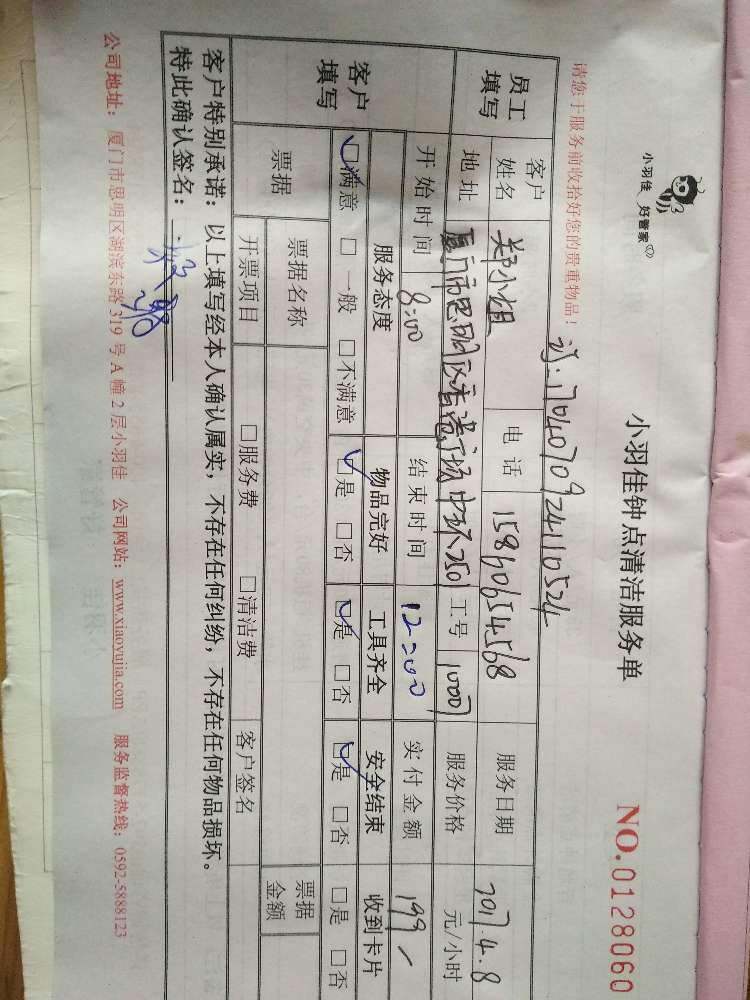 小羽佳 好管家
小羽佳钟点清洁服务单
NO.0128060
请您于服务前收拾好您的贵重物品！
订:1704070924110524
员工填写
客户姓名 郑小姐 电话 15860654568 服务日期 2017.4.8
地址 厦门市思明区香港广场中环2501 工号 10007 服务价格 元/小时
客户填写
开始时间 8:00 结束时间 12:00 实付金额 199/
服务态度 物品完好 工具齐全 安全结束 收到卡片
☑满意 □一般 □不满意 ☑是 □否 ☑是 □否 ☑是 □否 □是 □否
票据 票据名称 票据金额
开票项目 □服务费 □清洁费 客户签名
客户特别承诺：以上填写经本人确认属实，不存在任何纠纷，不存在任何物品损坏。
特此确认签名：
公司地址：厦门市思明区湖滨东路319号A幢2层小羽佳 公司网站：www.xiaoyujia.com 服务监督热线：0592-5888123